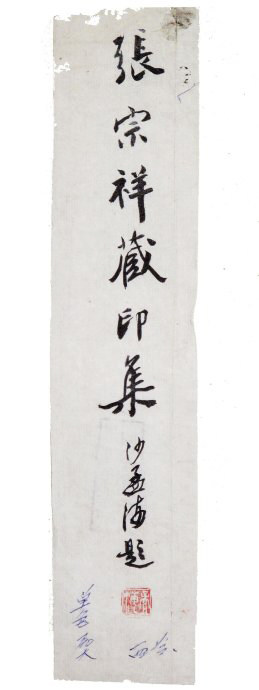 張宗祥藏印集
沙孟海題